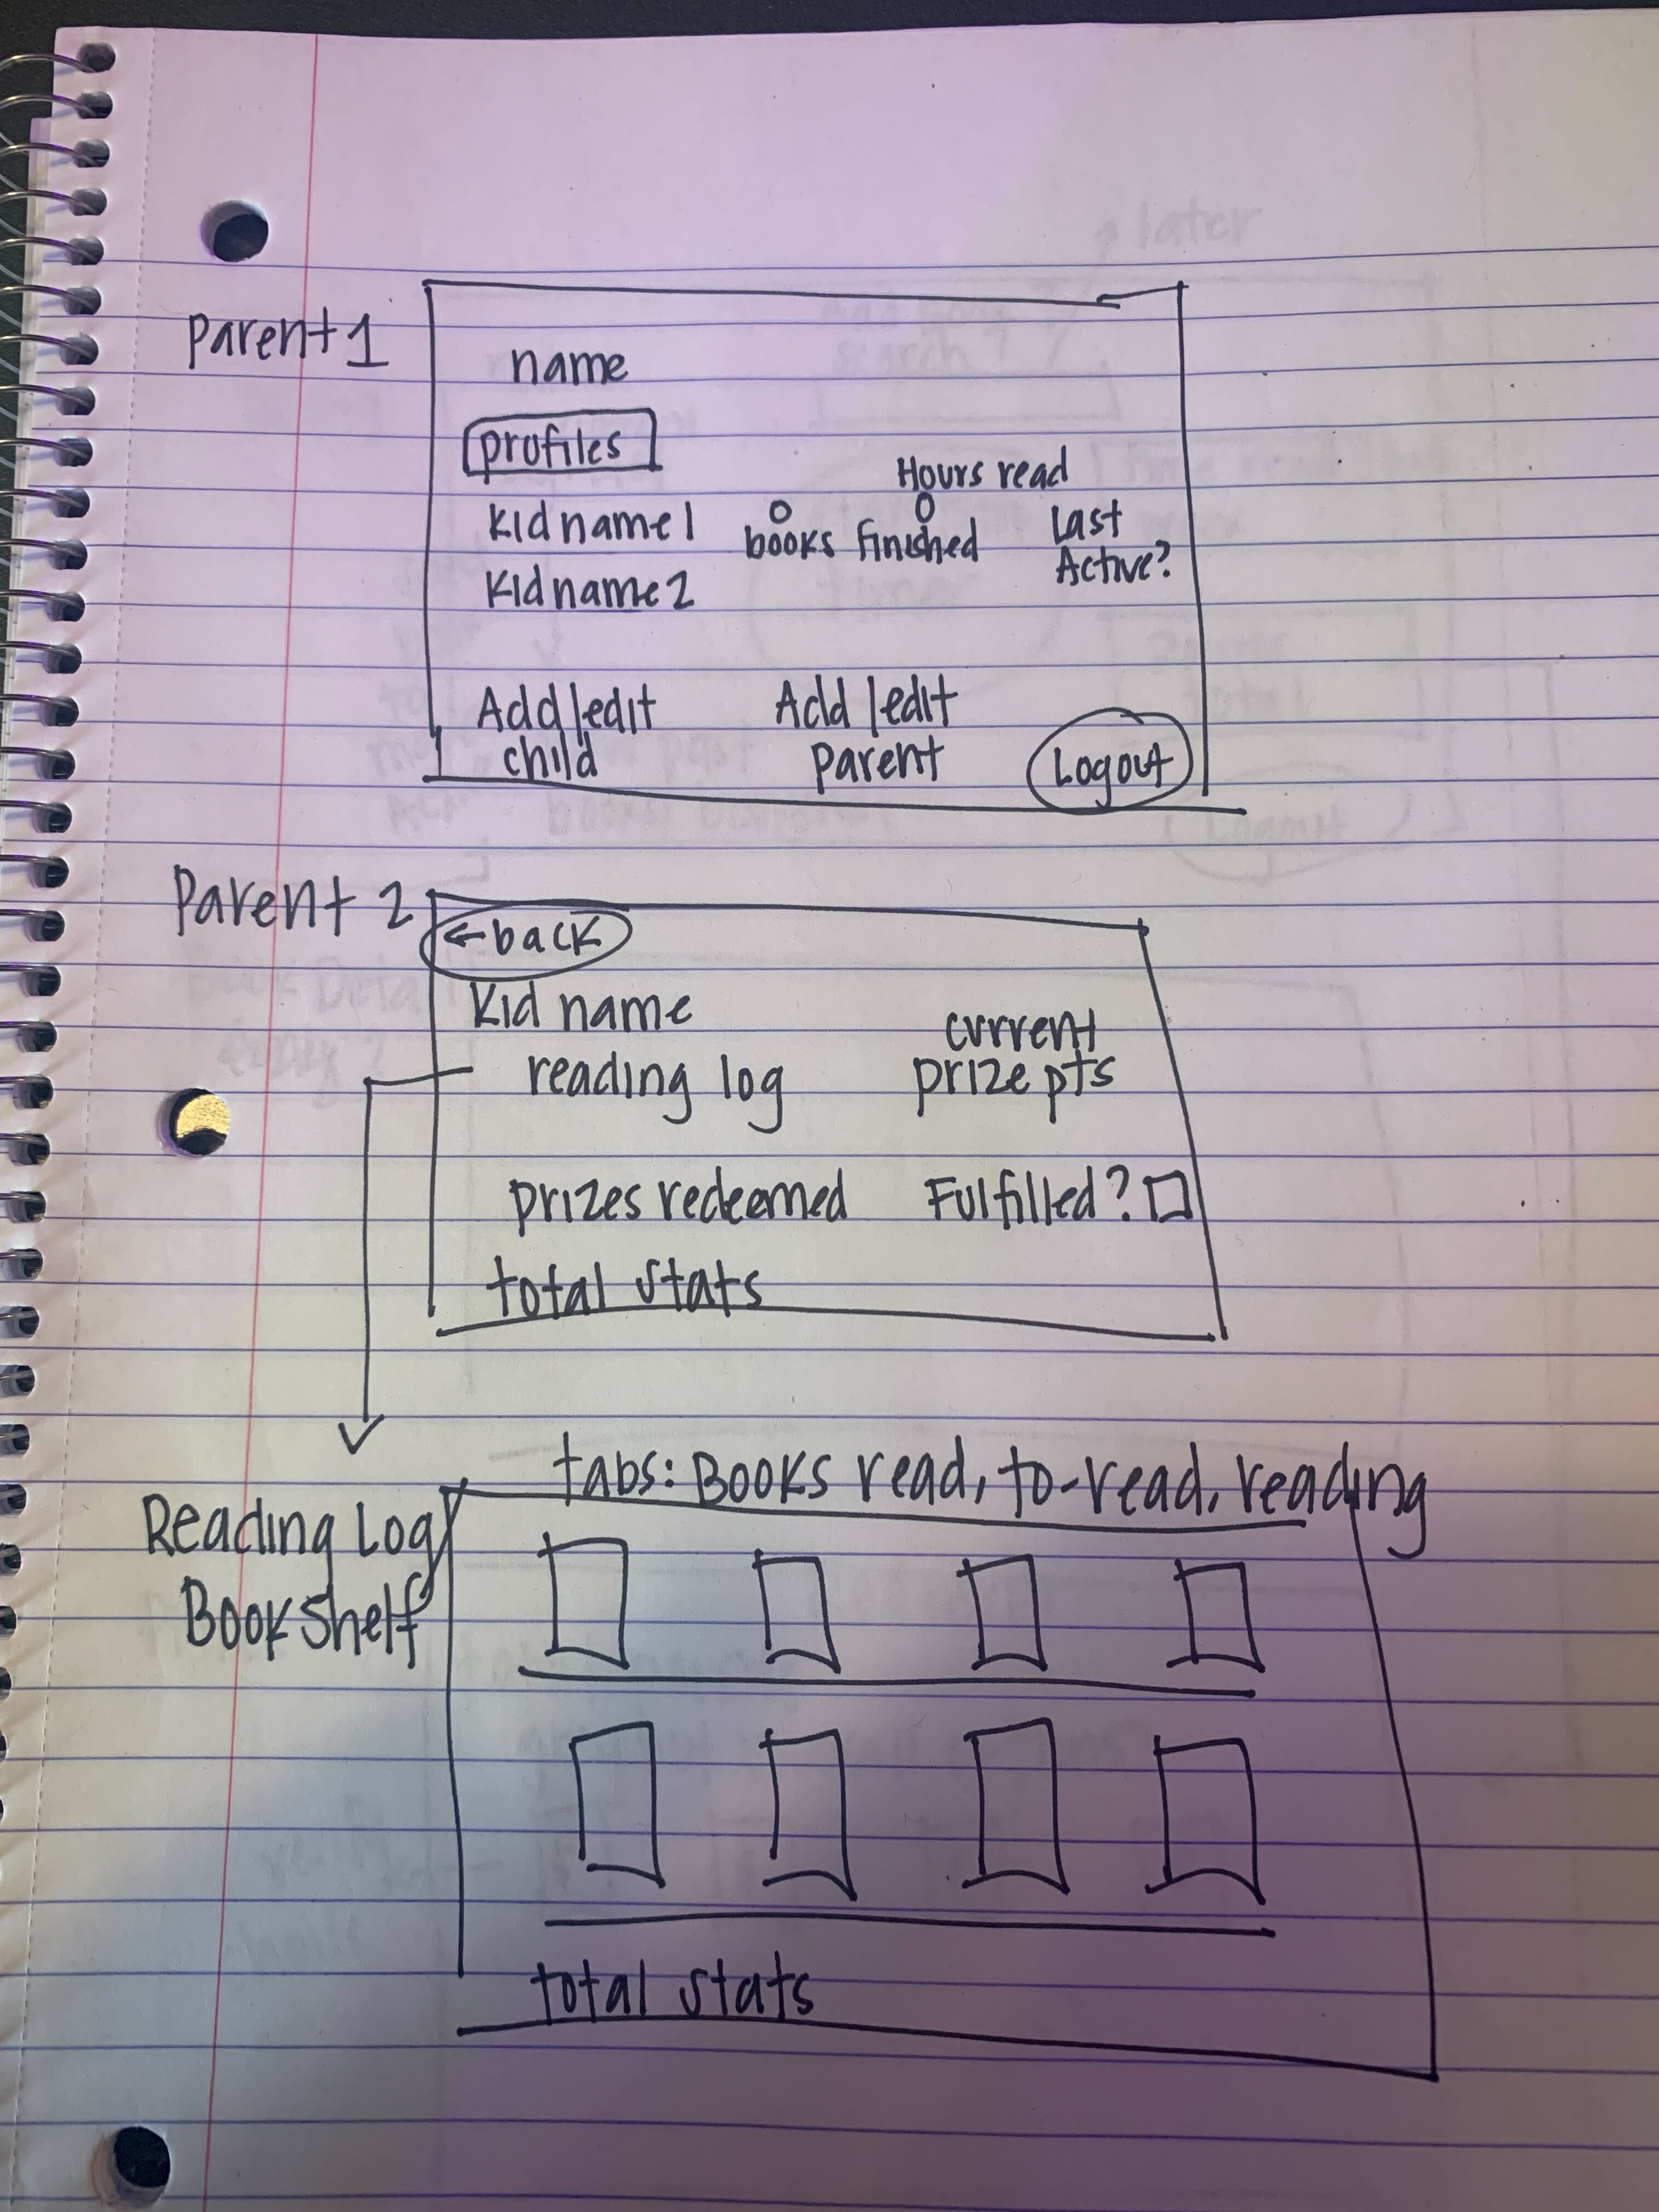 Parent 1
name
profiles
Hours read
Kid name 1 0 books finished 0 Last Active?
Kid name 2
Add/edit child
Add/edit parent
Logout
Parent 2
← back
Kid name
reading log
current prize pts
prizes redeemed Fulfilled?
total stats
Reading Log/
Bookshelf
tabs: Books read, to-read, reading
total stats